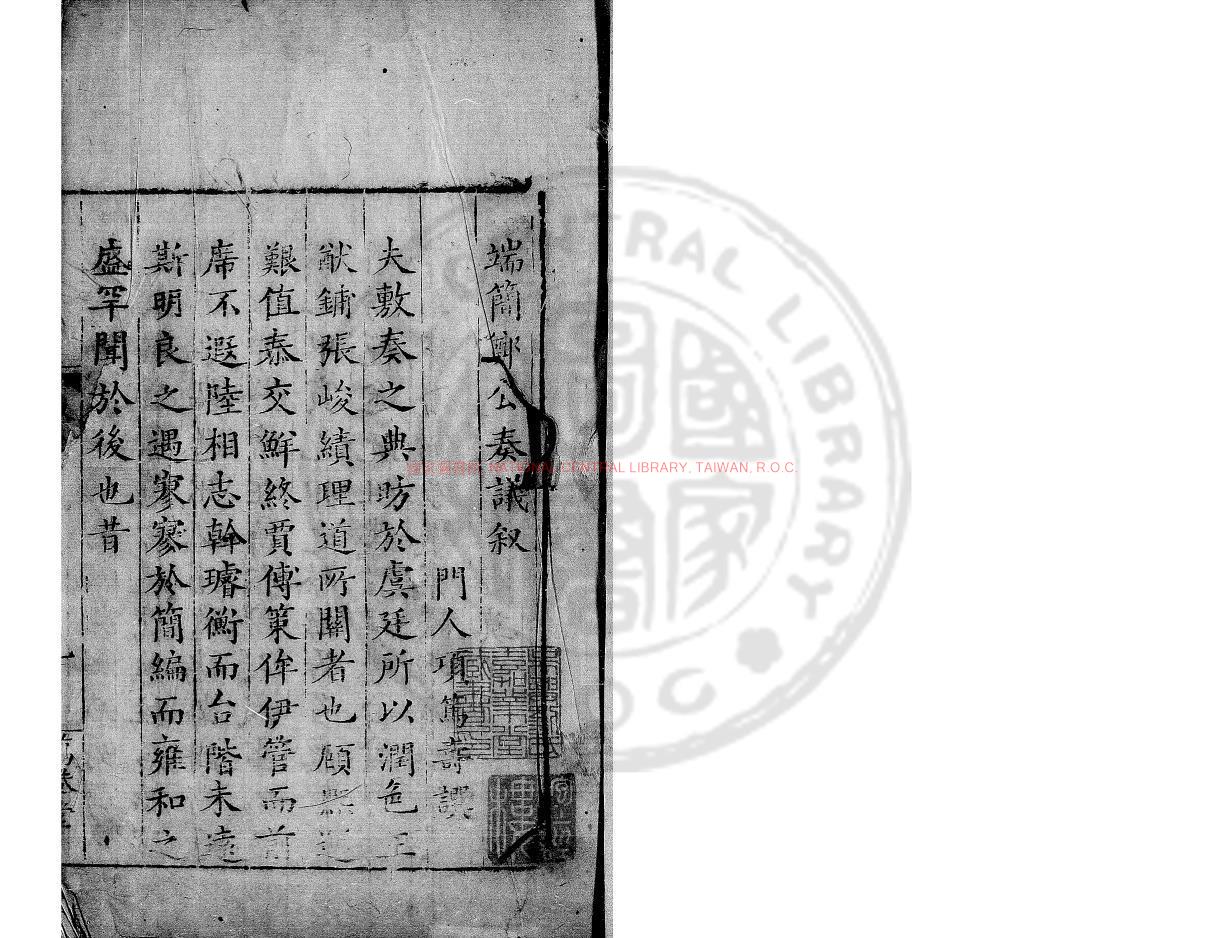 端簡鄭公奏議叙
門人項篤壽譔
夫敷奏之典昉於虞廷所以潤色王
猷鋪張峻績理道所關者也顧
艱值泰交鮮終賈傅策侔伊管而前
席不遐陸相志幹璿衡而台階未遠
斯明良之遇寥寥於簡編而雍和之
盛罕聞於後也昔
NATIONAL CENTRAL LIBRARY, TAIWAN, R.O.C.
CENTRAL LIBRARY
國家